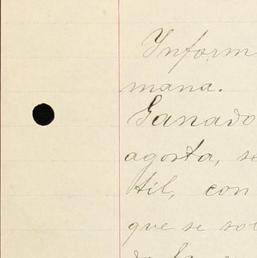 Inform
mana.
Ganado
agosta, se
til, con
que se sol